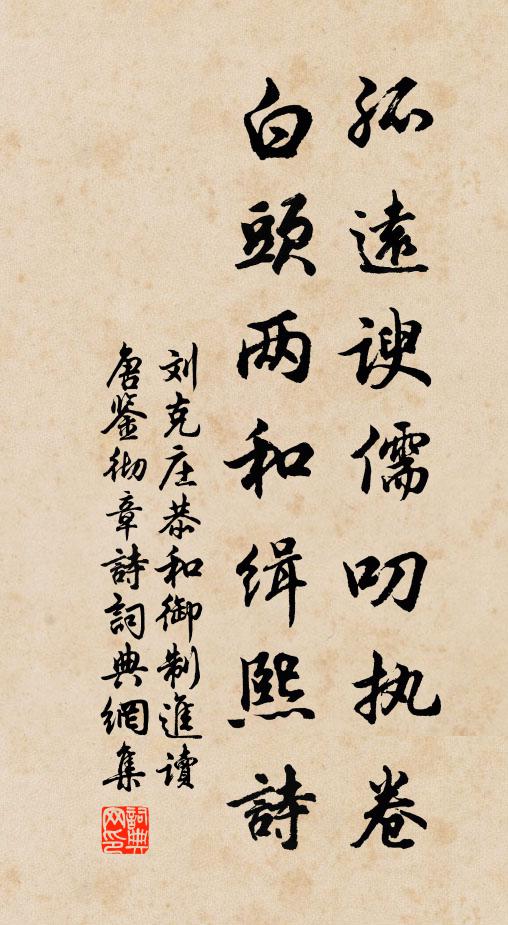 孤遠謏儒叨执卷
白頭两和缉熙詩
刘克庄恭和御制進讀
唐鉴彻章詩詞典網集
詞典网印